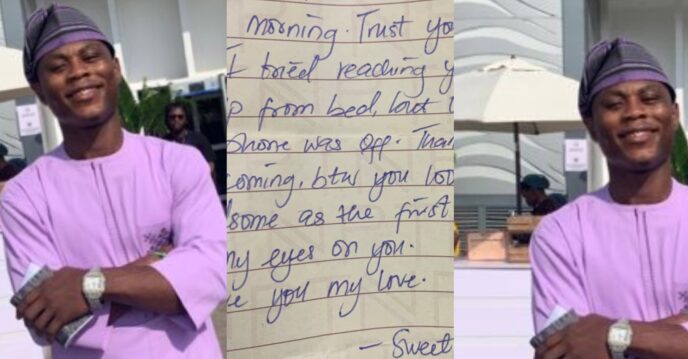 morning. Trust you
I tried reaching y
p from bed, but
phone was off. Than
coming, btw you loo
some as the first
my eyes on you.
e you my love.
- Sweet